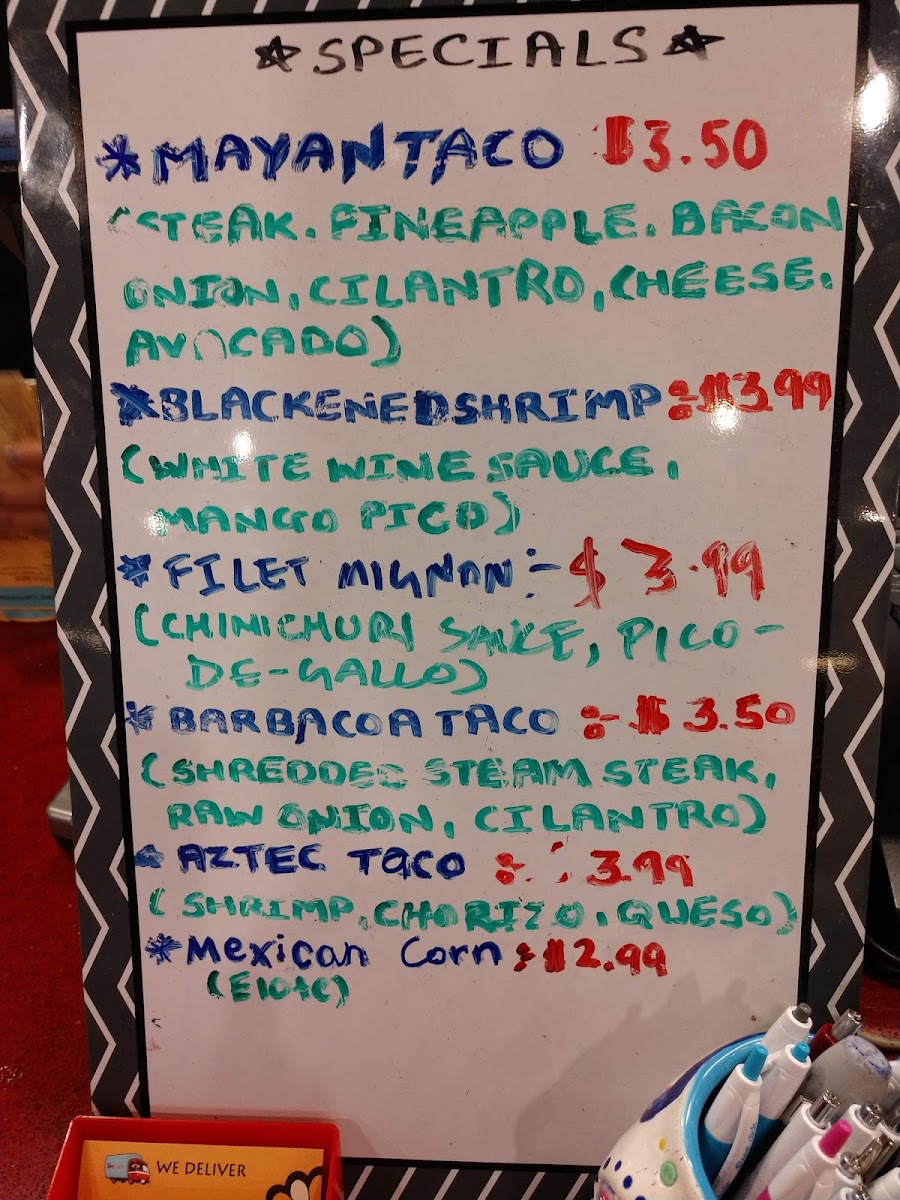 ☆SPECIALS☆
*MAYAN TACO $3.50
(STEAK. PINEAPPLE. BACON
ONION, CILANTRO, CHEESE.
AVOCADO)
*BLACKENED SHRIMP:-$13.99
(WHITE WINE SAUCE,
MANGO PICO)
*FILET MIGNON:-$3.99
(CHINICHURI SAUCE, PICO-
DE-GALLO)
*BARBACOA TACO :-$3.50
(SHREDDED STEAM STEAK,
RAW ONION, CILANTRO)
*AZTEC TACO :- 3.99
(SHRIMP, CHORIZO, QUESO)
*Mexican Corn :$2.99
(Elote)
WE DELIVER